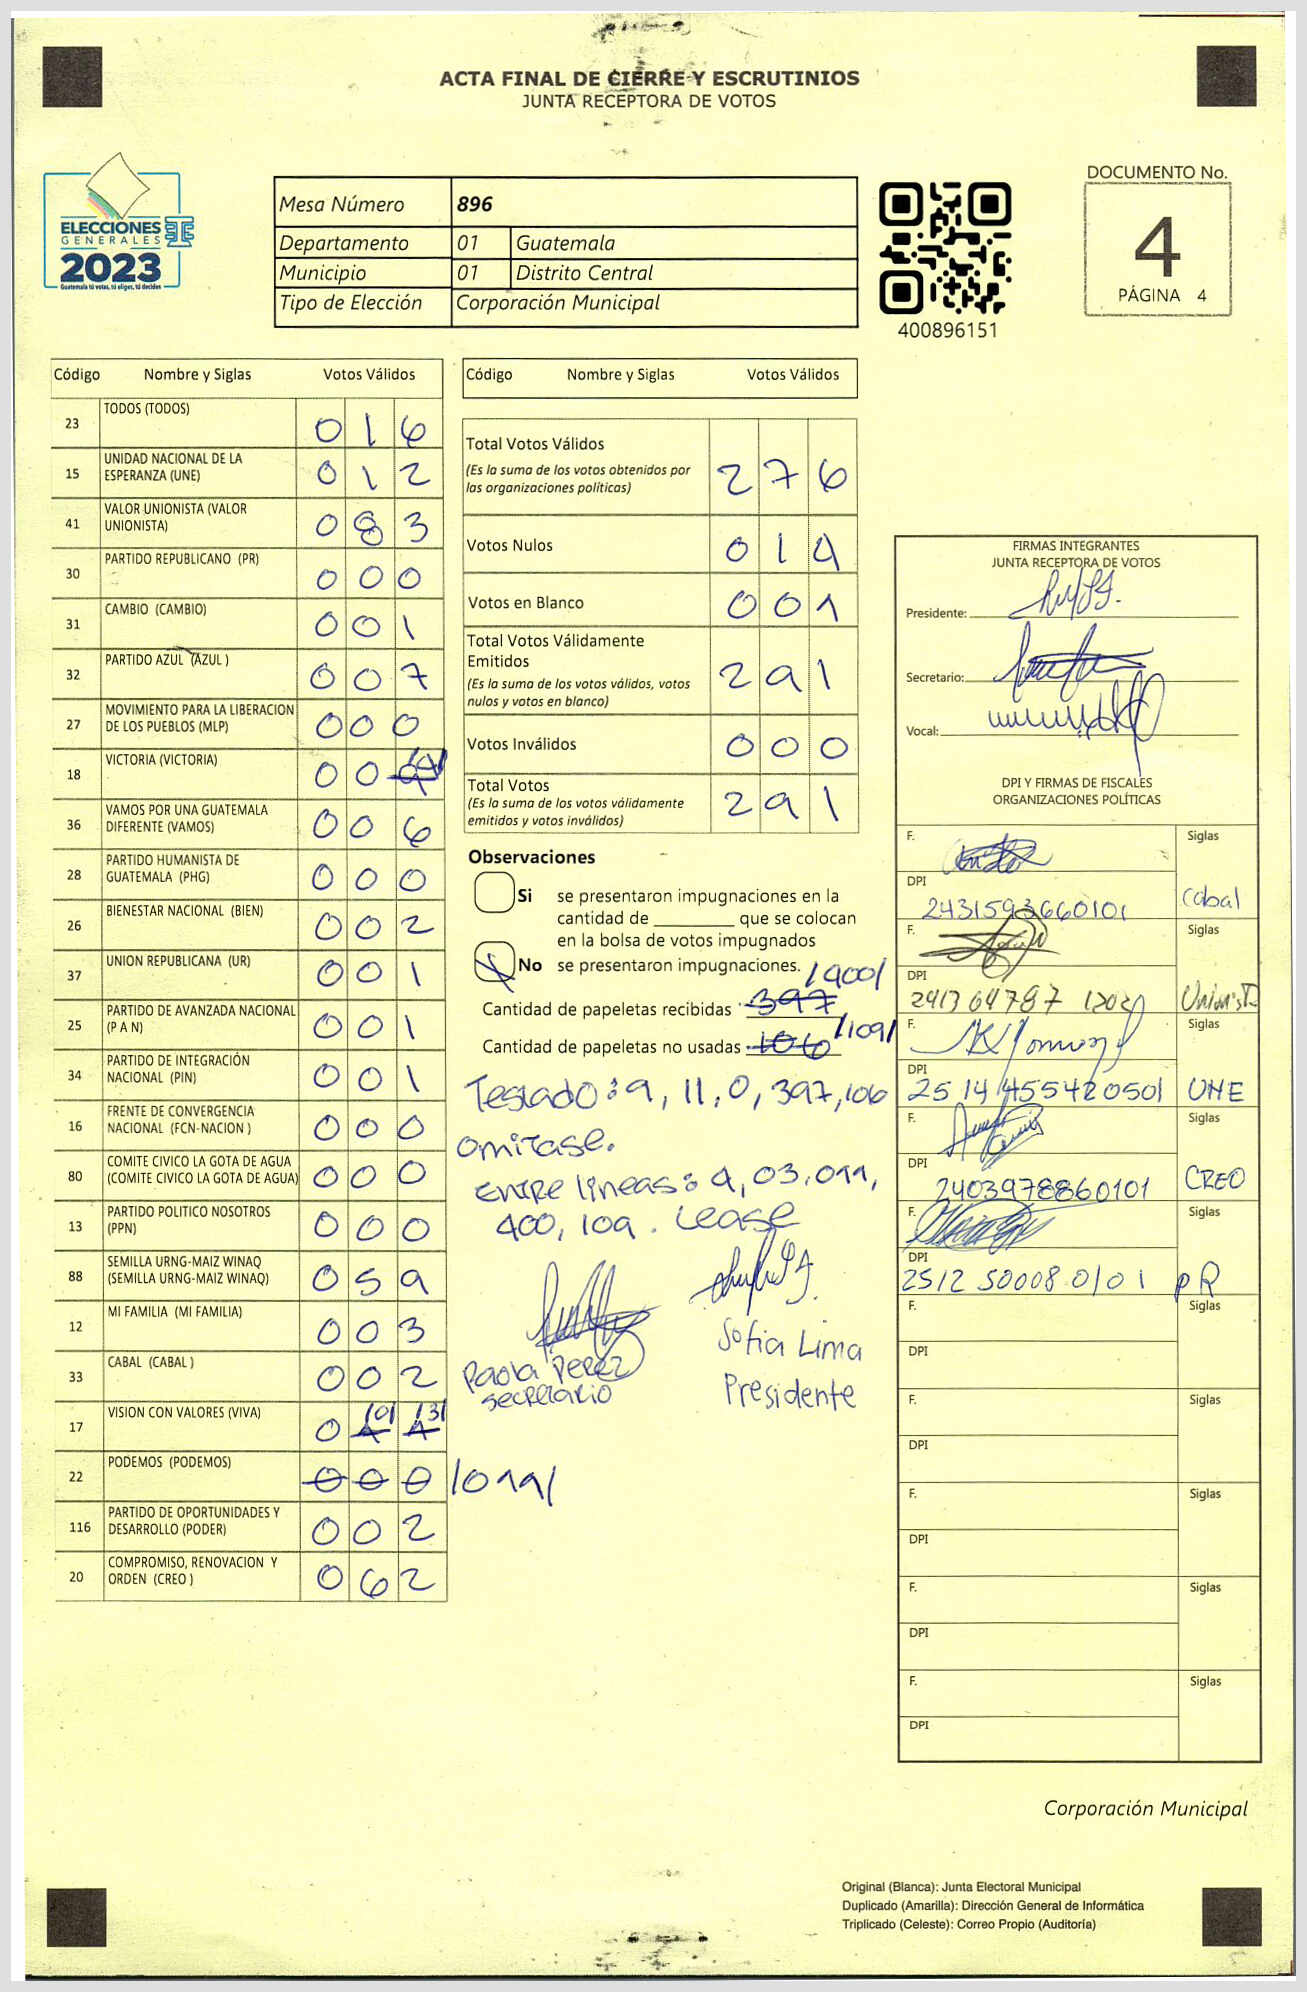 ACTA FINAL DE CIERRE Y ESCRUTINIOS
JUNTA RECEPTORA DE VOTOS
ELECCIONES
GENERALES
2023
Guatemala tú votas, tú eliges, tú decides
Mesa Número 896
Departamento 01 Guatemala
Municipio 01 Distrito Central
Tipo de Elección Corporación Municipal
400896151
DOCUMENTO No.
4
PÁGINA 4
Código Nombre y Siglas Votos Válidos
23 TODOS (TODOS) 0 1 6
15 UNIDAD NACIONAL DE LA
ESPERANZA (UNE) 0 1 2
41 VALOR UNIONISTA (VALOR
UNIONISTA) 0 8 3
30 PARTIDO REPUBLICANO (PR) 0 0 0
31 CAMBIO (CAMBIO) 0 0 1
32 PARTIDO AZUL (AZUL ) 0 0 7
27 MOVIMIENTO PARA LA LIBERACION
DE LOS PUEBLOS (MLP) 0 0 0
18 VICTORIA (VICTORIA) 0 0
36 VAMOS POR UNA GUATEMALA
DIFERENTE (VAMOS) 0 0 6
28 PARTIDO HUMANISTA DE
GUATEMALA (PHG) 0 0 0
26 BIENESTAR NACIONAL (BIEN) 0 0 2
37 UNION REPUBLICANA (UR) 0 0 1
25 PARTIDO DE AVANZADA NACIONAL
(P A N) 0 0 1
34 PARTIDO DE INTEGRACIÓN
NACIONAL (PIN) 0 0 1
16 FRENTE DE CONVERGENCIA
NACIONAL (FCN-NACION ) 0 0 0
80 COMITE CIVICO LA GOTA DE AGUA
(COMITE CIVICO LA GOTA DE AGUA) 0 0 0
13 PARTIDO POLITICO NOSOTROS
(PPN) 0 0 0
88 SEMILLA URNG-MAIZ WINAQ
(SEMILLA URNG-MAIZ WINAQ) 0 5 9
12 MI FAMILIA (MI FAMILIA) 0 0 3
33 CABAL (CABAL ) 0 0 2
17 VISION CON VALORES (VIVA) 0 /0/ /3/
22 PODEMOS (PODEMOS) 0 0 0 /011/
116 PARTIDO DE OPORTUNIDADES Y
DESARROLLO (PODER) 0 0 2
20 COMPROMISO, RENOVACION Y
ORDEN (CREO ) 0 6 2
Código Nombre y Siglas Votos Válidos
Total Votos Válidos
(Es la suma de los votos obtenidos por
las organizaciones políticas) 2 7 6
Votos Nulos 0 1 4
Votos en Blanco 0 0 1
Total Votos Válidamente
Emitidos
(Es la suma de los votos válidos, votos
nulos y votos en blanco) 2 9 1
Votos Inválidos 0 0 0
Total Votos
(Es la suma de los votos válidamente
emitidos y votos inválidos) 2 9 1
Observaciones
Si se presentaron impugnaciones en la
cantidad de ________ que se colocan
en la bolsa de votos impugnados
No se presentaron impugnaciones.
Cantidad de papeletas recibidas 397 /400/
Cantidad de papeletas no usadas 106 /109/
Testado: 9, 11, 0, 397, 106
omitase.
Entre lineas: 4, 03, 011,
400, 109. Lease
Paola Perez
secretario
Sofia Lima
Presidente
FIRMAS INTEGRANTES
JUNTA RECEPTORA DE VOTOS
Presidente:
Secretario:
Vocal:
DPI Y FIRMAS DE FISCALES
ORGANIZACIONES POLÍTICAS
F. Siglas
DPI
2431593660101 Cabal
F. Siglas
DPI
241364787 1202 Unionist
F. Siglas
DPI
25 14 45542 0501 UNE
F. Siglas
DPI
2403978860101 CREO
F. Siglas
DPI
2512 50008 0101 PR
F. Siglas
DPI
F. Siglas
DPI
F. Siglas
DPI
F. Siglas
DPI
F. Siglas
DPI
Corporación Municipal
Original (Blanca): Junta Electoral Municipal
Duplicado (Amarilla): Dirección General de Informática
Triplicado (Celeste): Correo Propio (Auditoría)